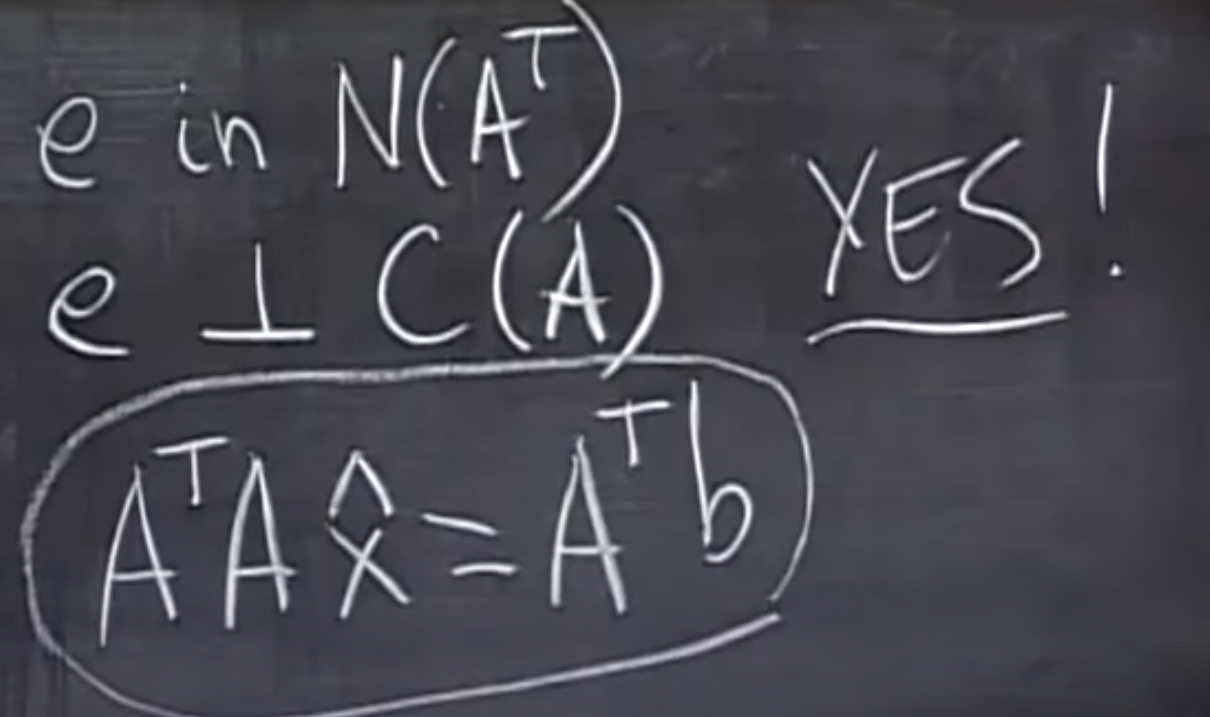 e in N(Aᵀ)
e ⊥ C(A) YES!
AᵀA x̂ = Aᵀb